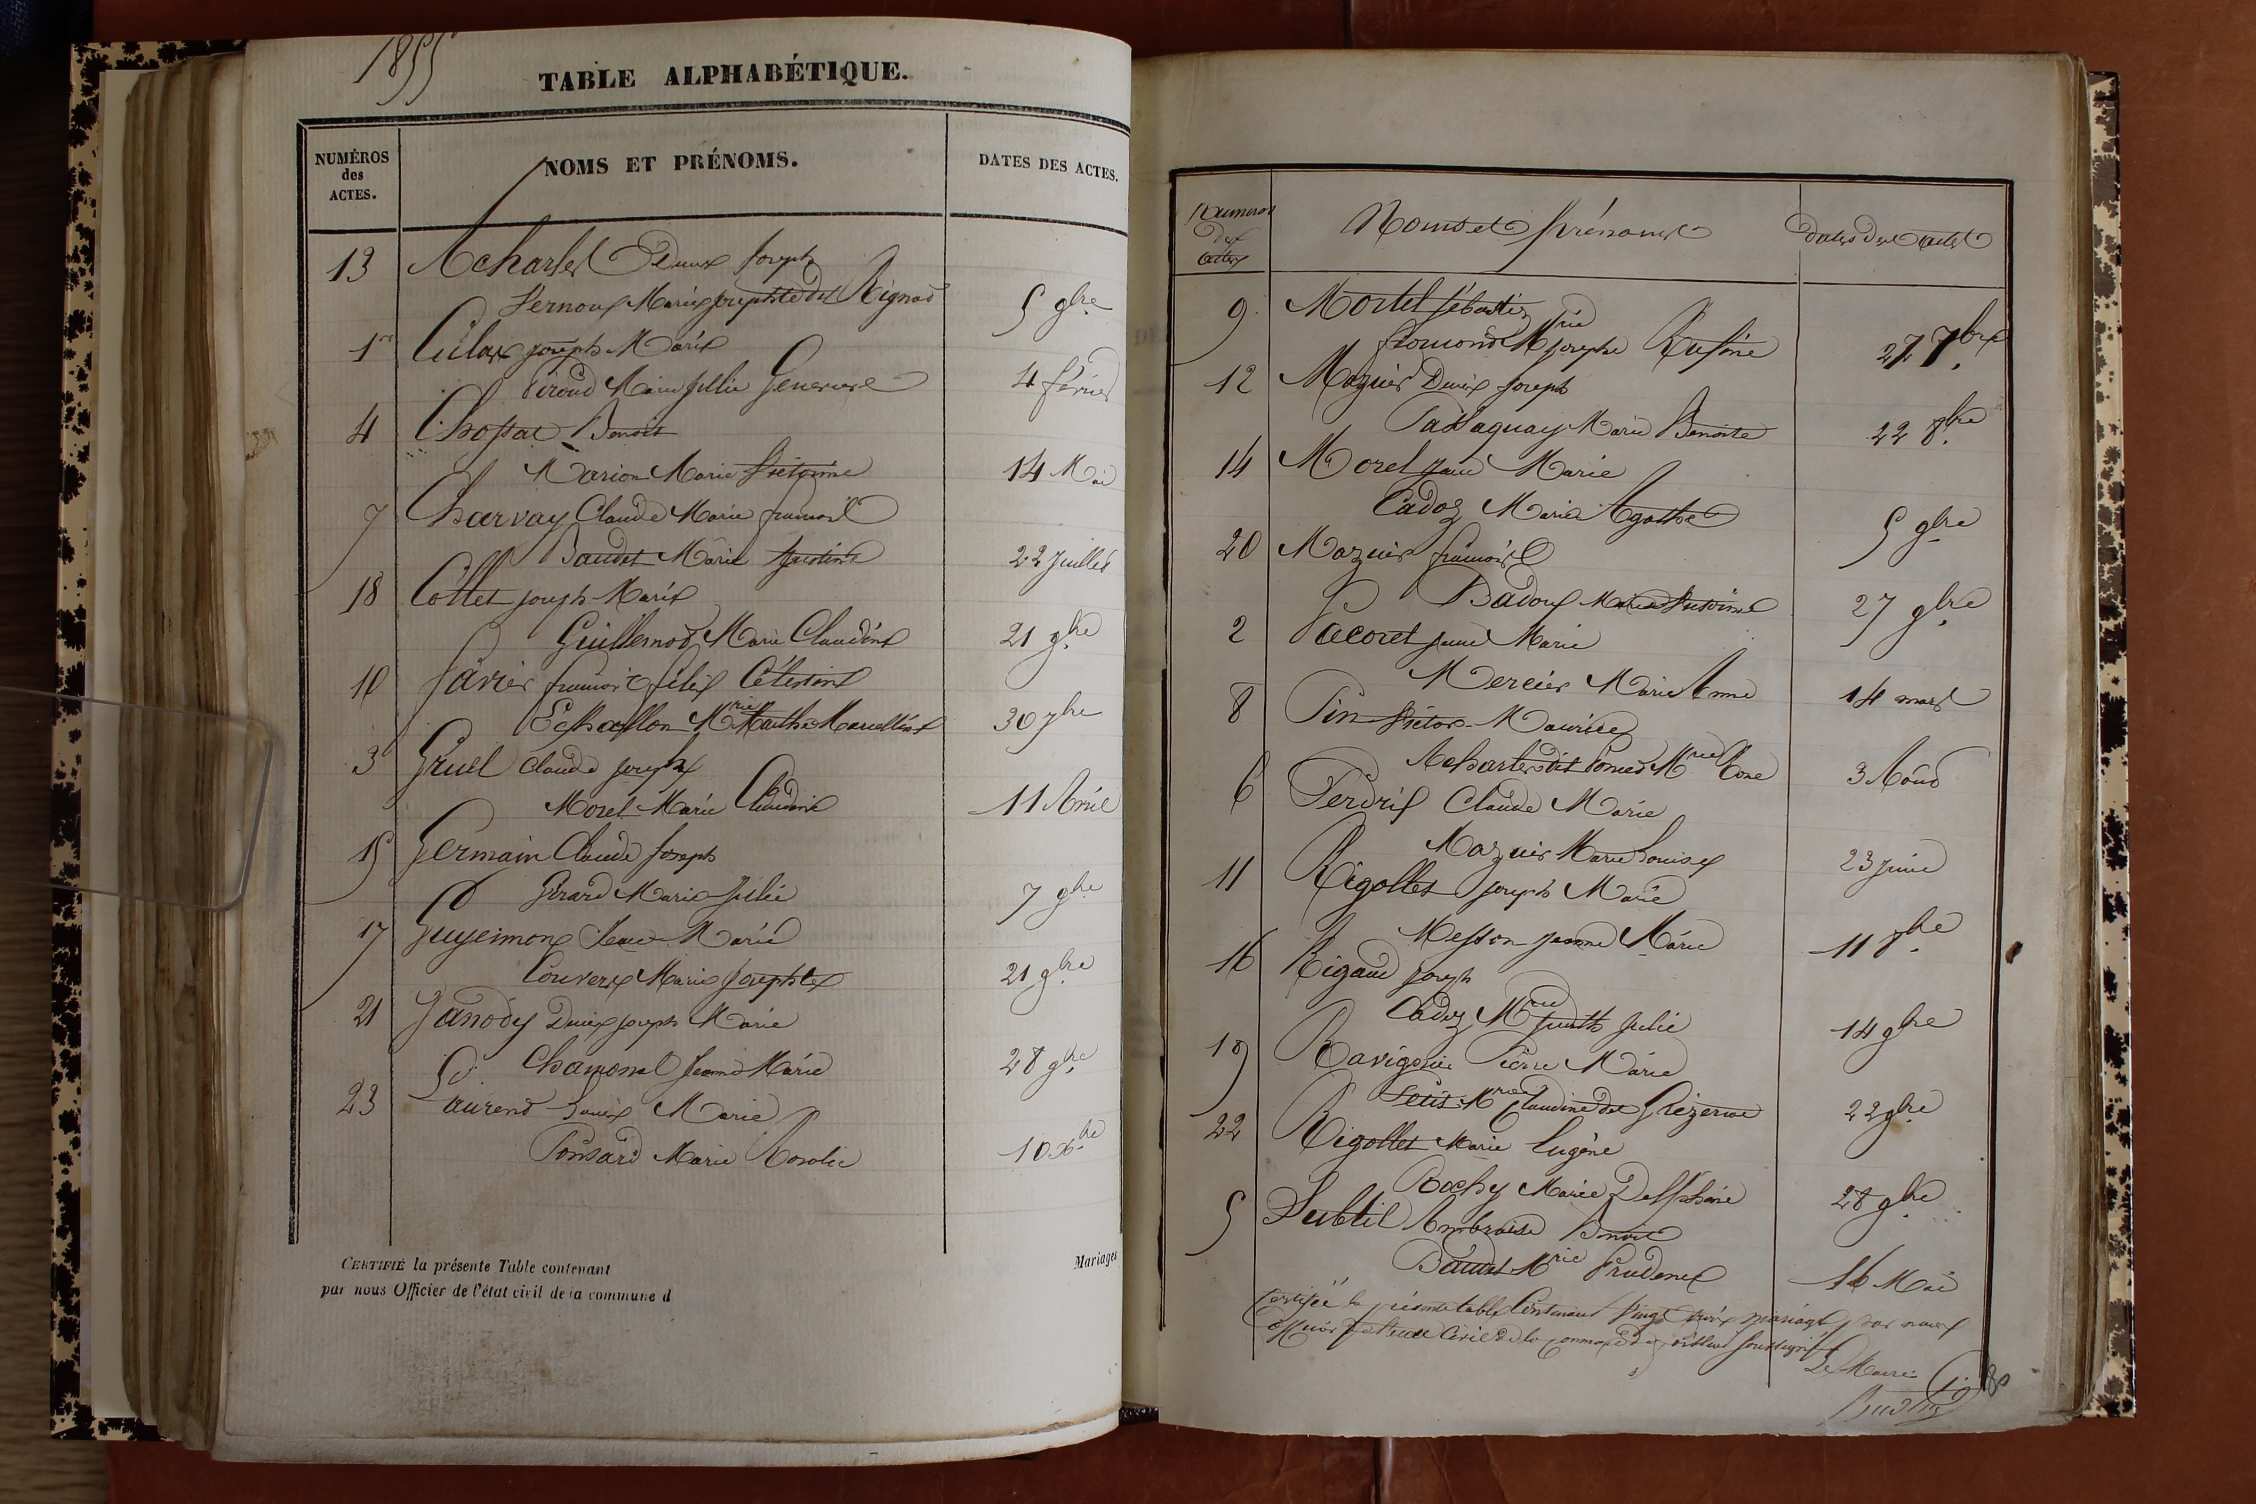 1855
TABLE ALPHABÉTIQUE.
NUMÉROS des ACTES.
NOMS ET PRÉNOMS.
DATES DES ACTES.
13 Acharles Joseph
Pernoux Marie Josephte 5 9bre
1er Joseph Marie
Marie Julie Geneviève 4 février
4 Benoit
Marion Marie Victorine 14 Mai
7 Charvay Claude Marie François
Baudet Marie Justine 22 Juillet
18 Collet Joseph Marie
Guillemot Marie Claudine 21 9bre
10 Favier François Félix Célestin
Echallon Mrie Marthe Marcelline 30 7bre
3 Gruel Claude Joseph
Morel Marie Claudine 11 Avril
15 Germain Claude Joseph
Girard Marie Julie 7 9bre
17 Guyeimon Jean Marie
Marie Josephte 21 9bre
21 Janody Denis Joseph Marie
Chamonal Jeanne Marie 28 9bre
23 Laurend Louis Marie
Ponsard Marie Rosalie 10 Xbre
CERTIFIÉ la présente Table contenant
Mariages
par nous Officier de l'état civil de la commune d
Numeros des actes
Noms et Prénoms
dates des actes
9 Mortel Sébastien
Mrie Josephe 27 7bre
12 Mazuir Denis Joseph
Passaquay Marie Benoite 22 8bre
14 Morel Jean Marie
Cadoz Marie Agathe 5 9bre
20 Mazuir François
Badoux Marie 27 9bre
2 Pacoret Jean Marie
Mercier Marie Anne 14 mars
8 Pin Victor Maurice
Acharles dit Mrie 3 Août
6 Perdrix Claude Marie
Mazuir Marie Louise 23 Juin
11 Rigollet Joseph Marie
Messon Jeanne Marie 11 8bre
16 Rigaud Joseph
Cadoz Mrie Judith Julie 14 9bre
19 Ravigorie Pierre Marie
Mrie Claudine 22 9bre
22 Rigollet Marie Eugène
Rochy Marie Delphine 28 9bre
5 Subtil Ambroise Benoit
Baudet Mrie Prudence 16 Mai
Certifiée la présente table Contenant Vingt trois mariages par nous
officier de l'état Civil de la commune soussigné
Le Maire